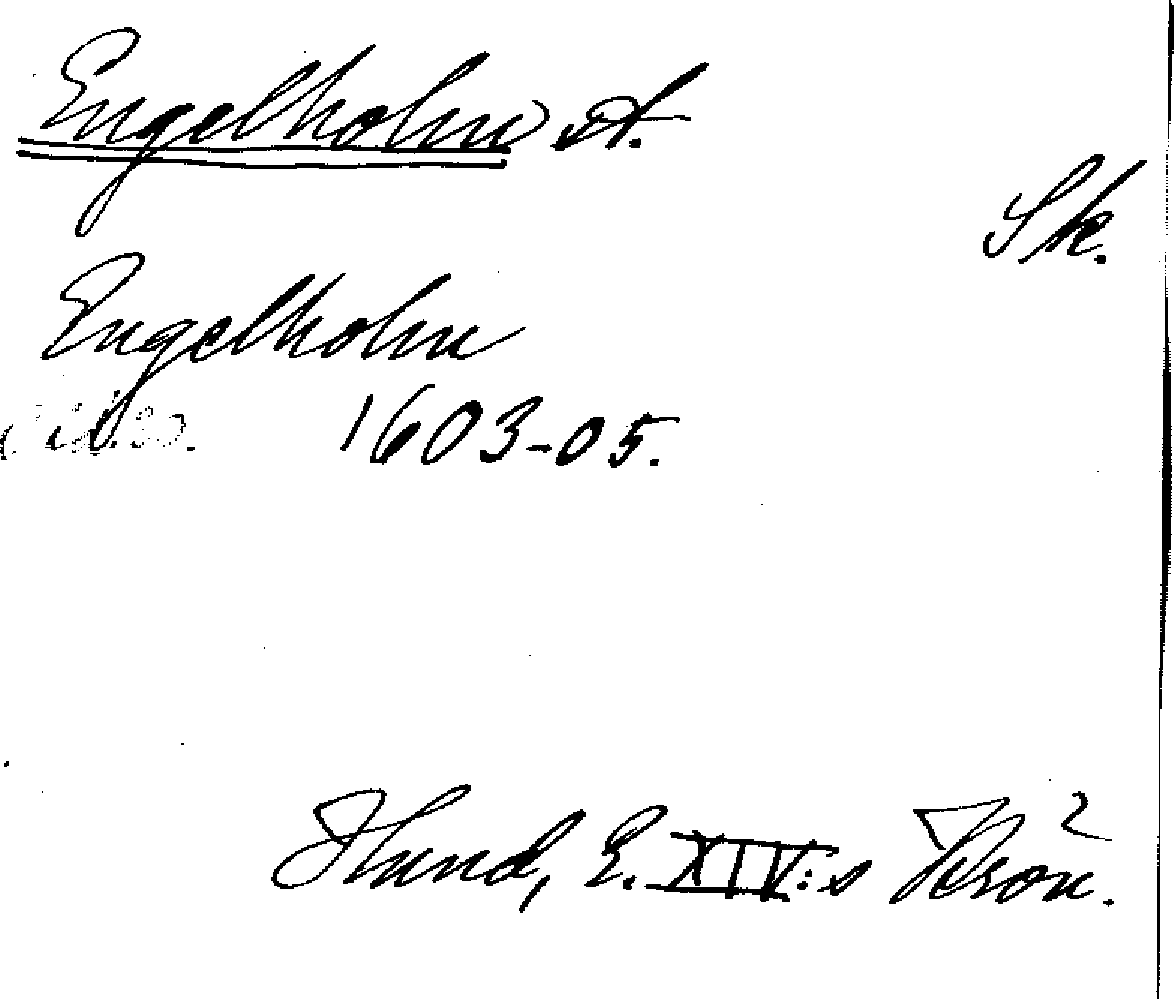 Engelholm st.
Sk.
Engelholm
1603-05.
Hund, E. XIV:s Krön.²